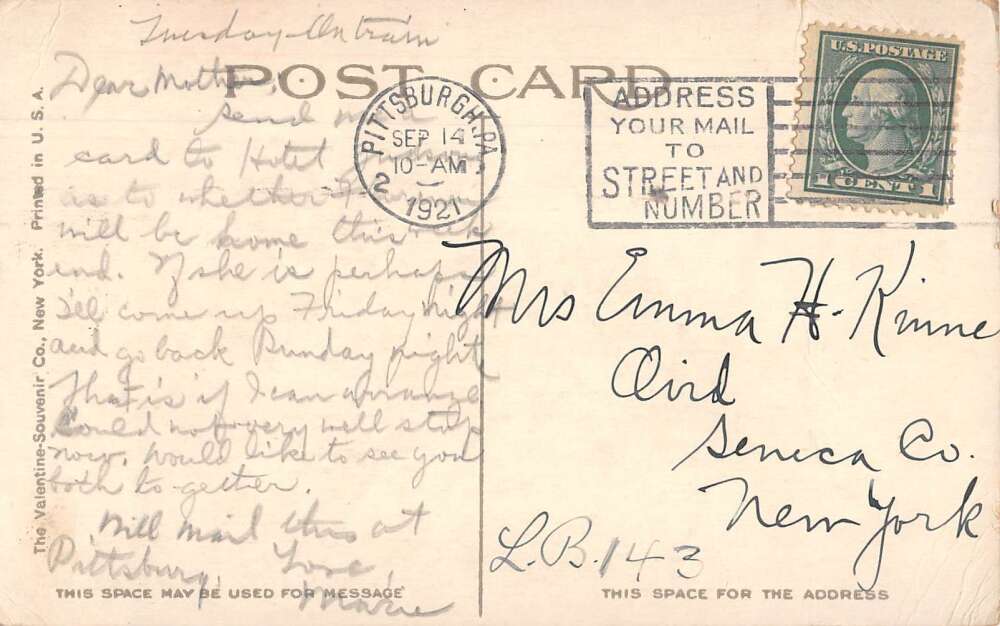 Tuesday - On train
POST CARD
Dear Mother,
Send me a
card to Hotel
as to whether
will be home this week
end. If she is perhaps
I'll come up Friday night
and go back Sunday night
That is if I can arrange
Could not very well stop
now. Would like to see you
both to-gether.
Will mail this at
Pittsburg. Love
Marie
THIS SPACE MAY BE USED FOR MESSAGE
The Valentine-Souvenir Co., New York. Printed in U. S. A.
PITTSBURGH, PA.
SEP 14
10-AM
2
1921
ADDRESS
YOUR MAIL
TO
STREET AND
NUMBER
U.S. POSTAGE
1 CENT 1
Mrs Emma H. Kinne
Ovid
Seneca Co.
New York
L.B. 143
THIS SPACE FOR THE ADDRESS